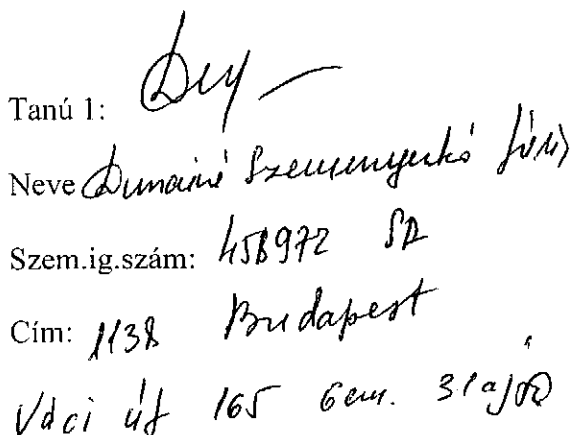 Tanú 1:
Neve Dunainé Szemenyerkó
Szem.ig.szám: 458972 SA
Cím: 1138 Budapest
Váci út 165 6 em. 31 ajtó